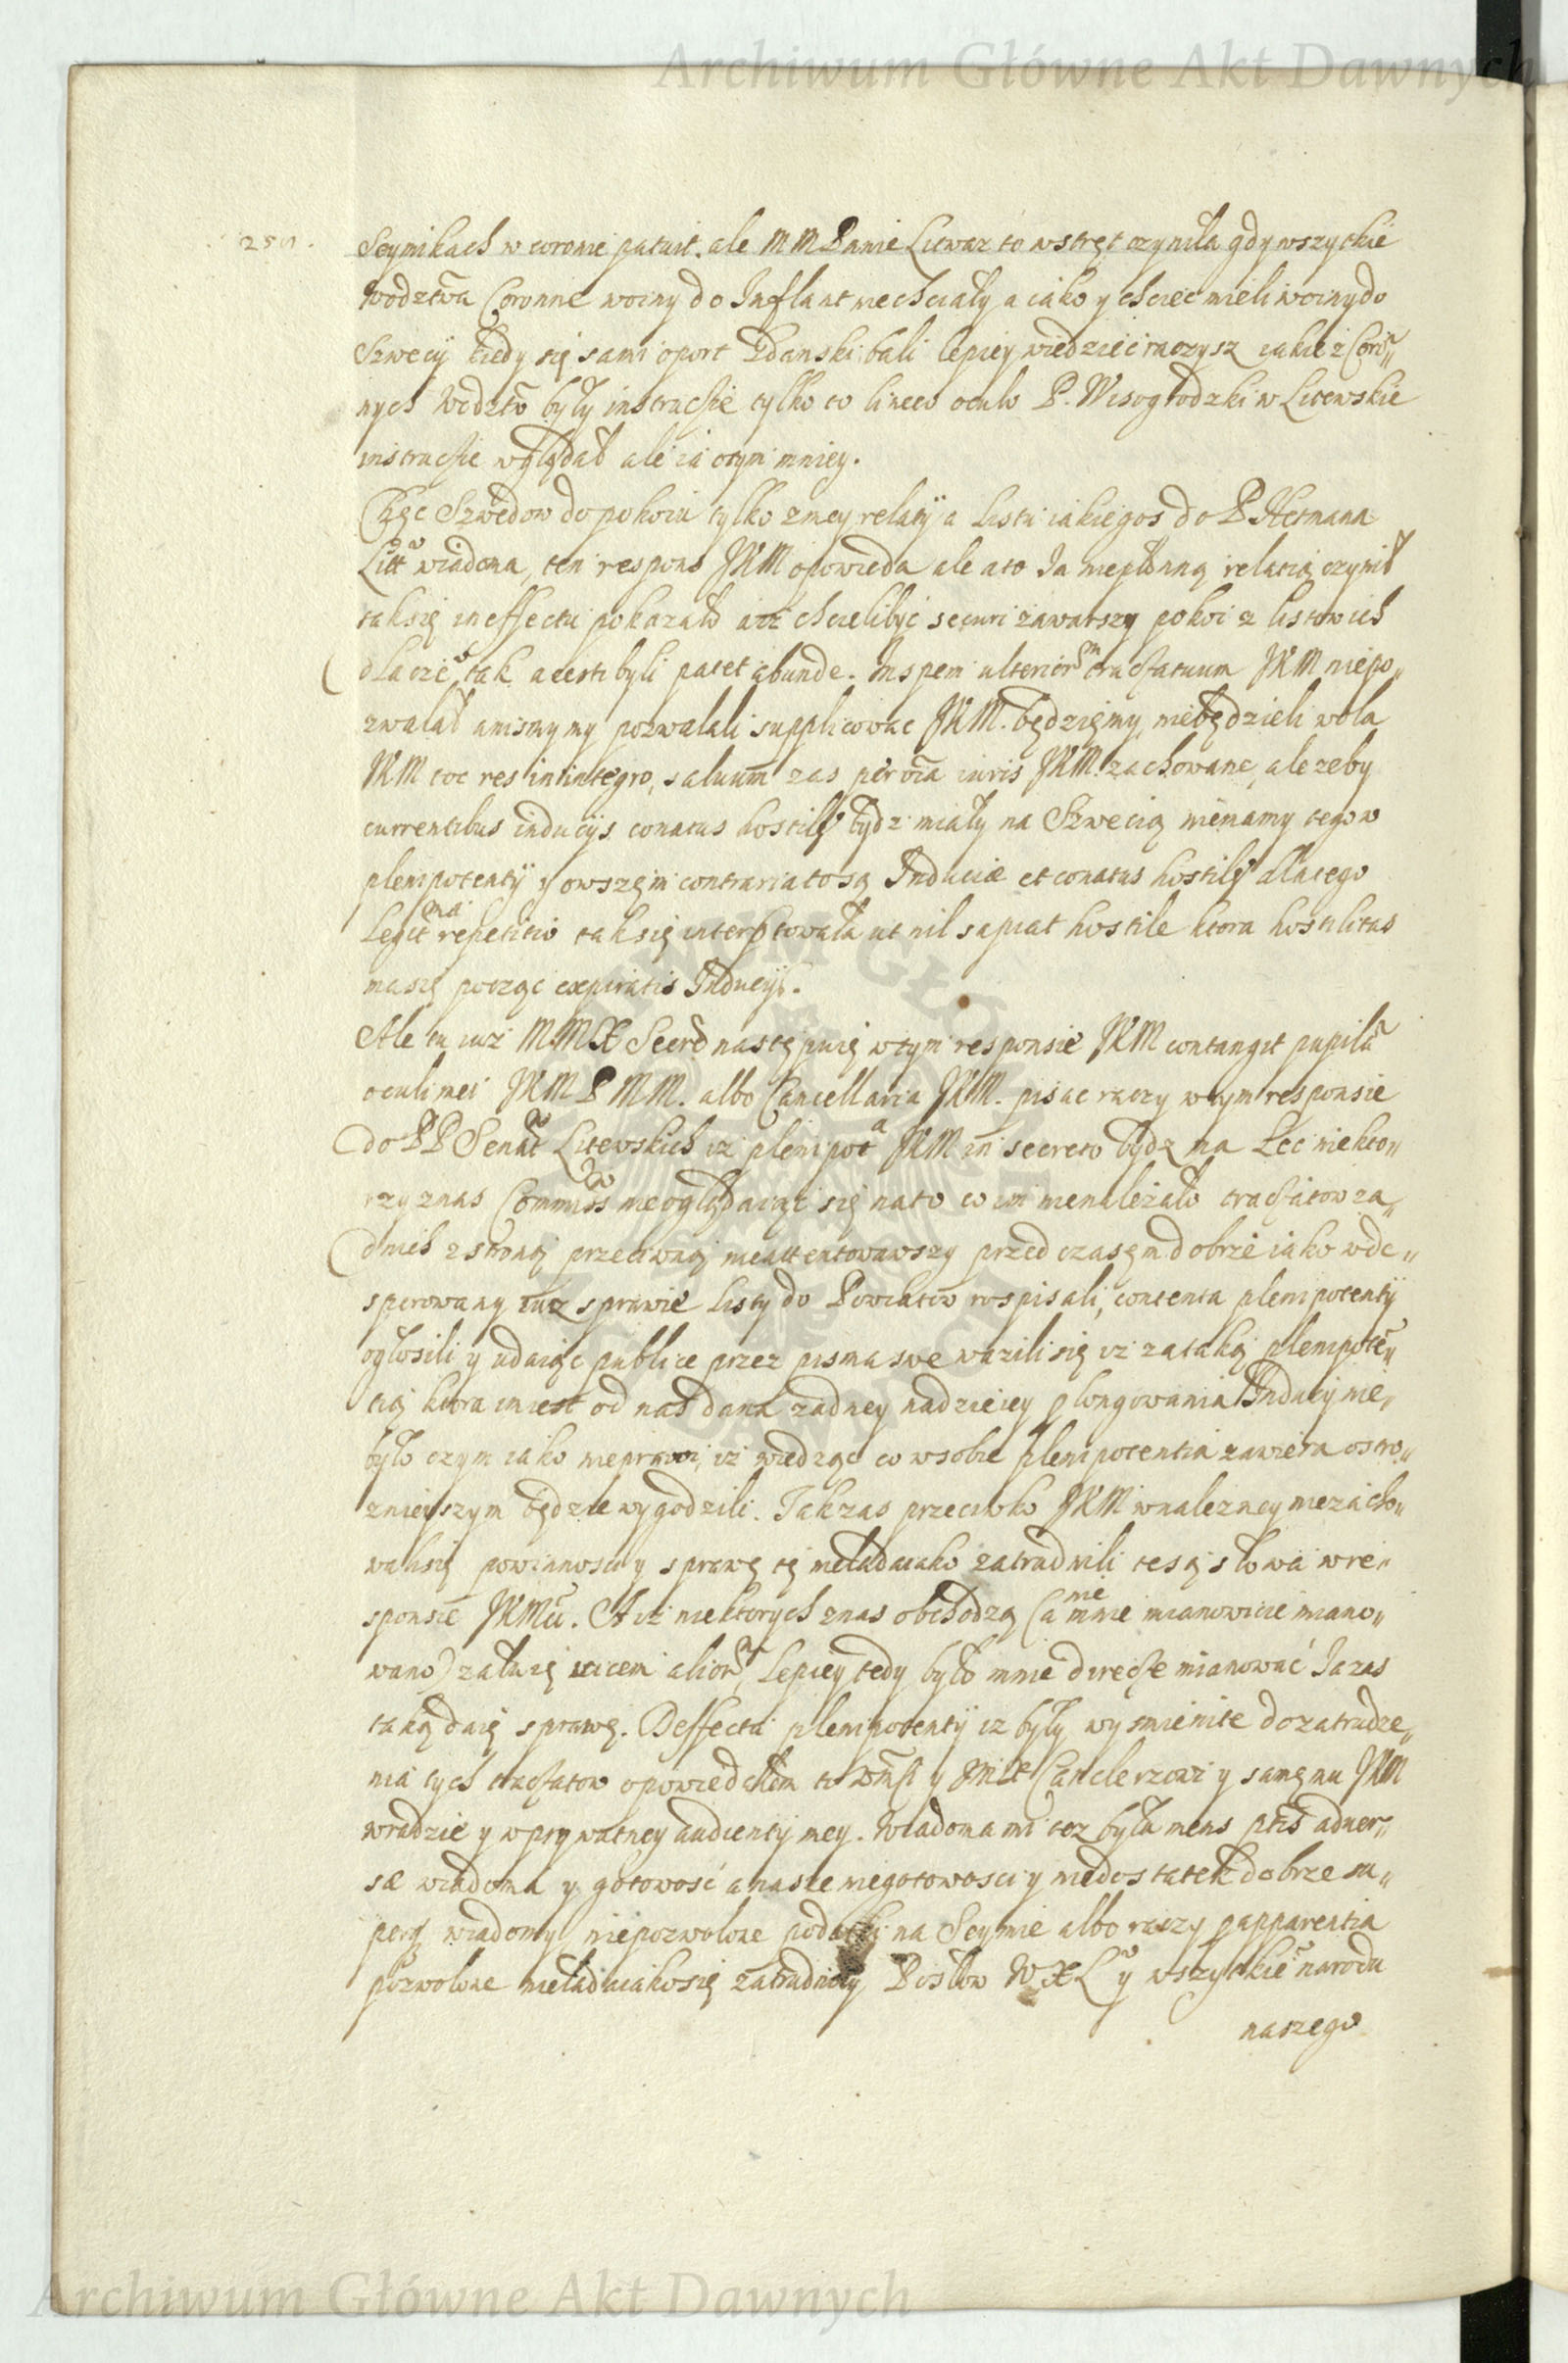 Archiwum Główne Akt Dawnych
250.
Seymikach w coronie patuit. ale MM Panie Litwaz to wstręt czyniła gdy wszytkie
Wodztwa Coronne woiny do Inflant niechciały a iako y chciec mieli woiny do
Szwecÿ kiedy się sami o port Gdanski bali lepiey wiedziec raczysz iakie z Coro„
nych Wdztw były instructie tylko co linceo oculo P. Wisogrodzki w Litewskie
instructie wglądał ale ia o tym mniey.
Chęc Szwedow do pokoiu tylko z mey relatÿ a listu iakiegos do P. Hetmana
Litt wiadoma, ten respons JKM opowieda ale a to Ia niepłonną relatią czynił
tak się in effectu pokazało asz chcielibyc securi zawarszy pokoi z listow ich
dlacze tak acerti byli patet abunde. In spem ulterior tractatuum JKM niepo„
zwalał a nismy my pozwalali supplicowac JKM. będziemy, niebędzieli wola
JKM toc res in integro, saluum zas per oia iuris JKM. zachowane, ale zeby
currentibus inducÿs conatus hostiles bydz miały na Szwecią niemamy tego w
plenipotentÿ y owszem contraria to są Induciæ et conatus hostiles dlacego
Legitma repetitio tak się interptowała ut nil sapiat hostile ktora hostilitas
ma się począc expiratis Inducÿs.
Ale tu iuz MMX Secrd następuię w tym responsie JKM contangit pupila
oculi mei JKM P MM. albo Cancellaria JKM. pisac raczy w tym responsie
do PP Senat Litewskich iz plenipota JKM in secreto bydz ma Lec niekto„
rzy z nas Commiss nieoglądaiąc się na to co im nienależało tractatow za„
dnich z stroną przeciwną nieattentowawszy przed czasem dobrze iako w de„
sperowany iuz sprawie listy do Powiatow rospisali, contenta plenipotentÿ
ogłosili y udaiąc publice przez pisma swe wazili się iz za taką plenipote„
tią ktora im iest od nas dana zadney nadzieiey plongowania Inducÿ nie„
było czym iako nieprawi, iz wiedząc co w sobie plenipotentia zawiera ostro„
znieyszym będzie wygodzili. Tak zas przeciwko JKM w nalezney niezacho„
wali się powinnosci y sprawę tę nieladaiako zatrudnili te są słowa w re„
sponsie JKMci. A iz niektorych z nas obchodzą (a mnie nie mianowicie miano„
wano) załuię vicem alior, Lepiey tedy było mnie directe mianować Ia zas
taką daię sprawę. Deffecta plenipotentÿ iz były wysmienite do zatrudze„
nia tych tractatow opowiedałem to Wmści y Jmx Canclerzowi y samemu JKM
w radzie y w prywatney audientÿ mey. Wiadoma mi tez była mens ptis aduer„
sæ wiadoma y gotowość a nasze niegotowosci y niedostatek dobrze su„
perq wiadomy niepozwolone podatki na Seymie albo raczy p apparentia
pozwolone nieladaiako się zatrudniły Posłow WXL y wszytkie narodu
naszego
Archiwum Główne Akt Dawnych